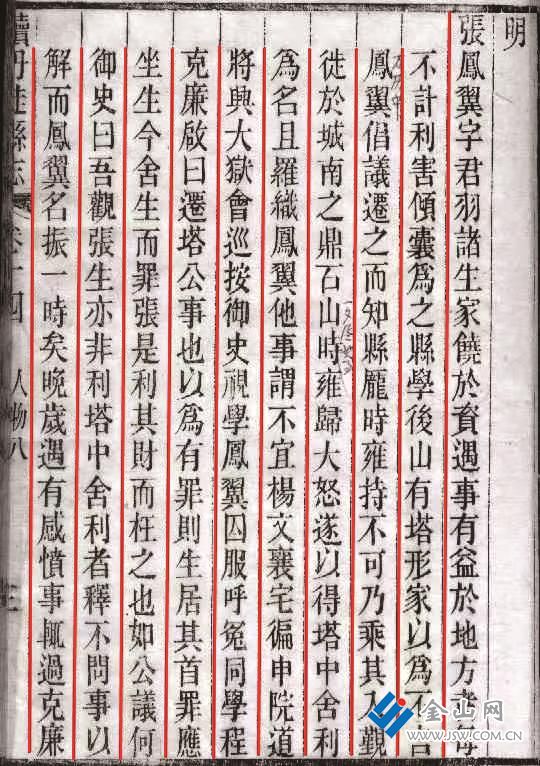 明
張鳳翼字君羽諸生家饒於資遇事有益於地方者每
不計利害傾囊爲之縣學後山有塔形家以爲不吉
鳳翼倡議遷之而知縣龐時雍持不可乃乘其入覲
徙於城南之鼎石山時雍歸大怒遂以得塔中舍利
爲名且羅織鳳翼他事謂不宜楊文襄宅徧申院道
將興大獄會巡按御史視學鳳翼囚服呼冤同學程
克廉啟曰遷塔公事也以爲有罪則生居其首罪應
坐生今舍生而罪張是利其財而枉之也如公議何
御史曰吾觀張生亦非利塔中舍利者釋不問事以
解而鳳翼名振一時矣晚歲遇有感憤事輒過克廉
續丹徒縣志 卷十四 人物八
金山网
www.JSW.com.cn